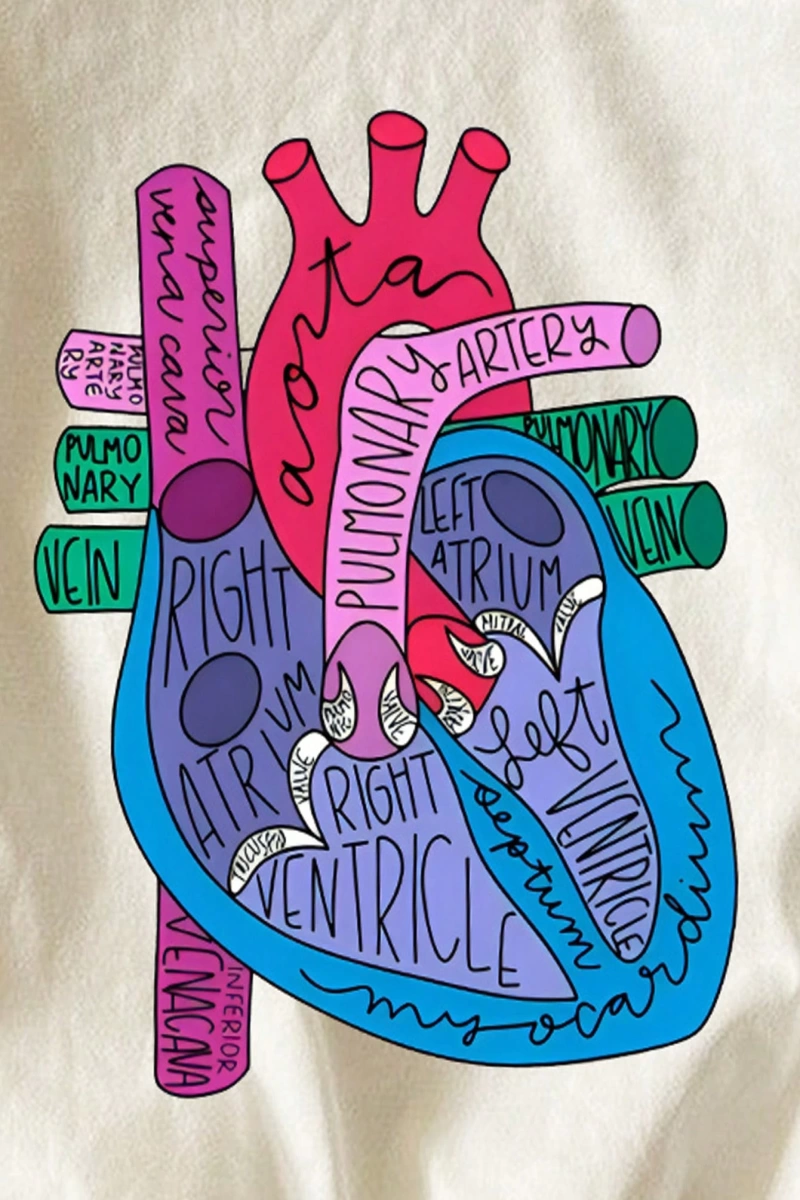 superior
vena cava
aorta
PULMONARY ARTERY
PULMO
NARY
ARTE
RY
PULMO
NARY
VEIN
PULMONARY
VEIN
LEFT
ATRIUM
RIGHT
ATRIUM
MITRAL
VALVE
VALVE
PULMO
NIC
VALVE
VALVE
TRICUSPID
RIGHT
VENTRICLE
left
VENTRICLE
septum
myocardium
INFERIOR
VENACANA